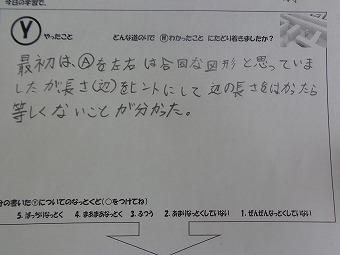 今日の学習で、
Y やったこと どんな道のりで わかったこと にたどり着きましたか?
最初は、Ⓐを左右は合同な図形と思っていま
したが長さ(辺)をヒントにして辺の長さをはかったら
等しくないことが分かった。
分の書いたⓎについてのなっとくど(○をつけてね)
5. ばっちりなっとく 4. まあまあなっとく 3. ふつう 2. あまりなっとくしていない 1. ぜんぜんなっとくしていない